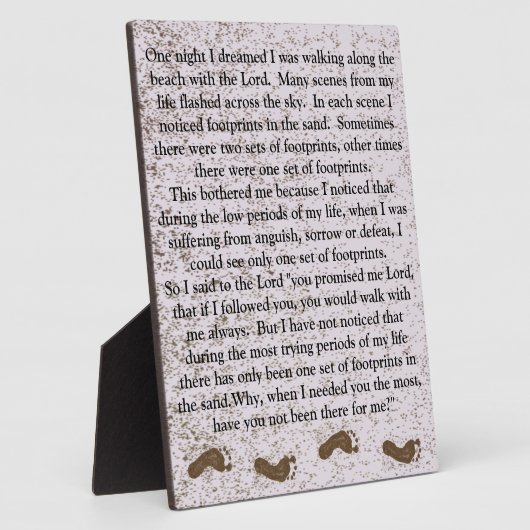 One night I dreamed I was walking along the
beach with the Lord.  Many scenes from my
life flashed across the sky.  In each scene I
noticed footprints in the sand.  Sometimes
there were two sets of footprints, other times
there were one set of footprints.
This bothered me because I noticed that
during the low periods of my life, when I was
suffering from anguish, sorrow or defeat, I
could see only one set of footprints.
So I said to the Lord "you promised me Lord,
that if I followed you, you would walk with
me always.  But I have not noticed that
during the most trying periods of my life
there has only been one set of footprints in
the sand.Why, when I needed you the most,
have you not been there for me?"